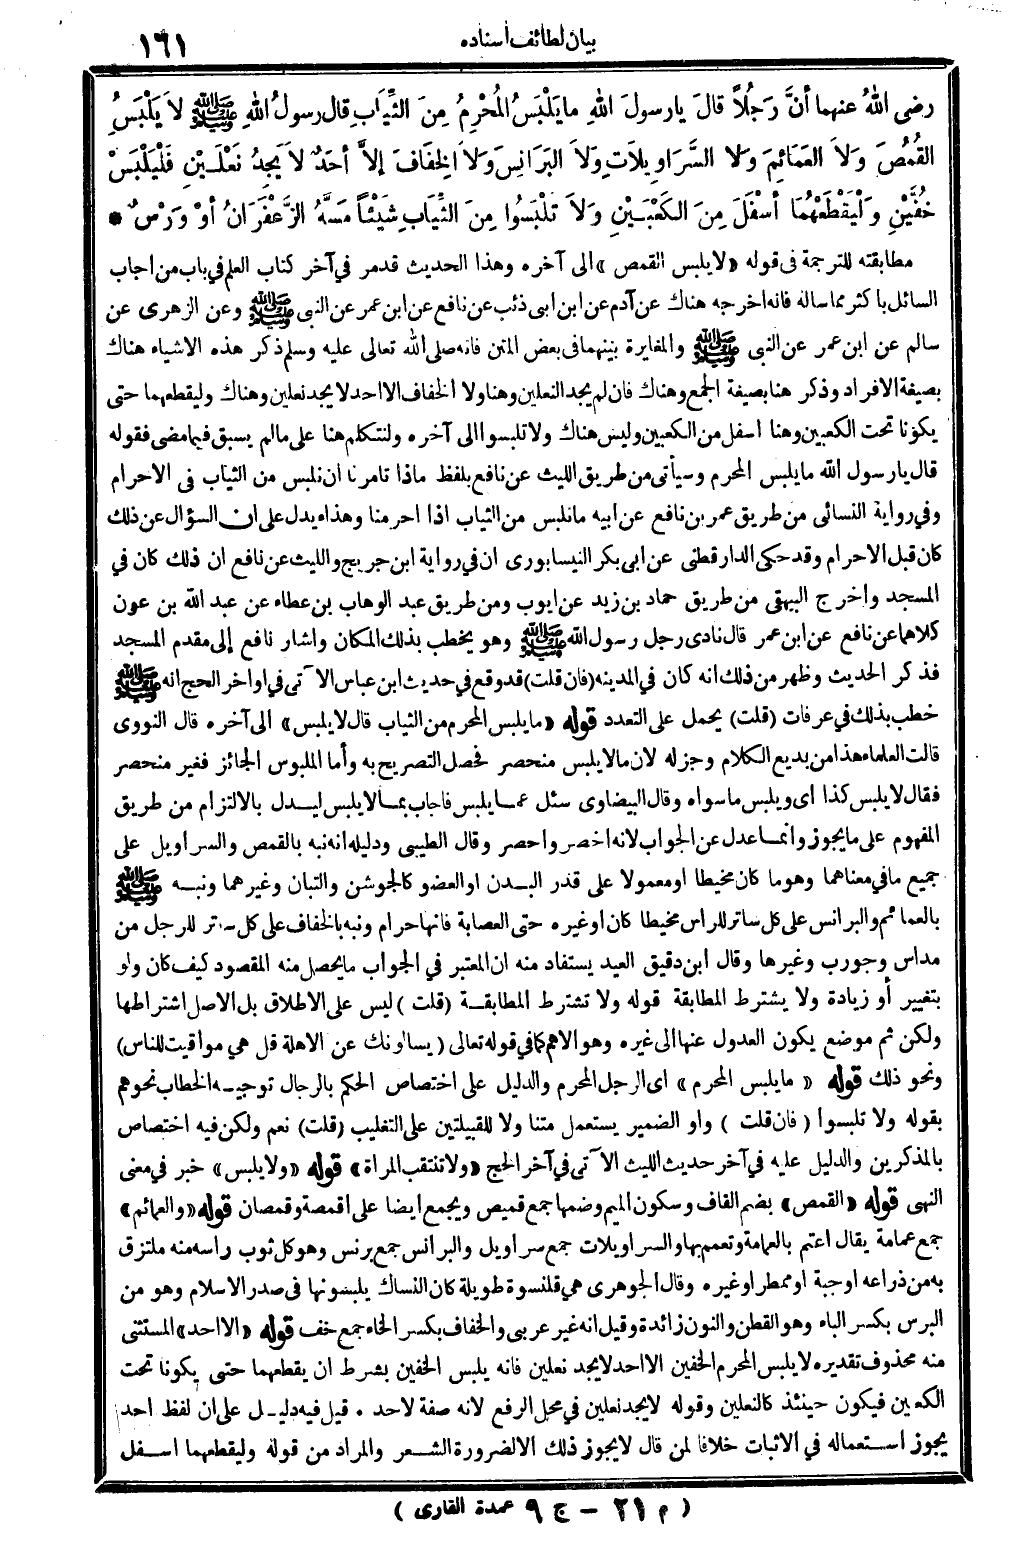 بيان لطائف أسناده
١٦١
رضى اللهُ عنهما أنَّ رَجُلاً قالَ يارسولَ اللهِ مايَلْبَسُ المُحْرِمُ مِنَ الثِّيَابِ قال رسولُ اللهِ ﷺ لاَ يَلْبَسُ
القُمُصَ وَلاَ العَمَائِمَ وَلاَ السَّرَاوِيلاَتِ وَلاَ البَرَانِسَ وَلاَ الخِفَافَ إلاَّ أحَدٌ لاَ يَجِدُ نَعْلَـيْنِ فَلْيَلْبَسْ
خُفَّيْنِ وَلْيَقْطَعْهُمَا أسْفَلَ مِنَ الكَعْبَـيْنِ وَلاَ تَلْبَسُوا مِنَ الثِّيَابِ شَيْئاً مَسَّهُ الزَّعْفَرَانُ أوْ وَرْسٌ *
مطابقته للترجمة فى قوله «لا يلبس القمص» الى آخره وهذا الحديث قدمر في آخر كتاب العلم في باب من اجاب
السائل باكثر مما ساله فانه اخرجه هناك عن آدم عن ابن ابى ذئب عن نافع عن ابن عمر عن النبى ﷺ وعن الزهرى عن
سالم عن ابن عمر عن النبى ﷺ والمغايرة بينهما فى بعض المتن فانه صلى الله تعالى عليه وسلم ذكر هذه الاشياء هناك
بصيغة الافراد وذكر هنا بصيغة الجمع وهناك فان لم يجد النعلين وهنا ولا الخفاف الا احد لا يجد نعلين وهناك وليقطعهما حتى
يكونا تحت الكعبين وهنا اسفل من الكعبين وليس هناك ولا تلبسوا الى آخره ولنتكلم هنا على مالم يسبق فيما مضى فقوله
قال يارسول الله مايلبس المحرم وسيأتى من طريق الليث عن نافع بلفظ ماذا تامرنا ان نلبس من الثياب فى الاحرام
وفي رواية النسائى من طريق عمر بن نافع عن ابيه مانلبس من الثياب اذا احرمنا وهذا يدل على ان السؤال عن ذلك
كان قبل الاحرام وقد حكى الدارقطنى عن ابى بكر النيسابورى ان في رواية ابن جريج والليث عن نافع ان ذلك كان في
المسجد واخرج البيهقى من طريق حماد بن زيد عن ايوب ومن طريق عبد الوهاب بن عطاء عن عبد الله بن عون
كلاهما عن نافع عن ابن عمر قال نادى رجل رسول الله ﷺ وهو يخطب بذلك المكان واشار نافع إلى مقدم المسجد
فذكر الحديث وظهر من ذلك انه كان في المدينه (فان قلت) قد وقع في حديث ابن عباس الآتى فى اواخر الحج انه ﷺ
خطب بذلك في عرفات (قلت) يحمل على التعدد قوله «مايلبس المحرم من الثياب قال لا يلبس» الى آخره قال النووى
قالت العلماء هذا من بديع الكلام وجزله لان مالا يلبس منحصر فحصل التصريح به وأما الملبوس الجائز فغير منحصر
فقال لا يلبس كذا اى ويلبس ماسواه وقال البيضاوى سئل عما يلبس فاجاب بما لا يلبس ليدل بالالتزام من طريق
المفهوم على مايجوز وانما عدل عن الجواب لانه اخصر واحصر وقال الطيبى ودليله انه نبه بالقمص والسراويل على
جميع مافي معناهما وهو ما كان مخيطا او معمولا على قدر البدن او العضو كالجوشن والتبان وغيرهما ونبه ﷺ
بالعمائم والبرانس على كل ساتر للراس مخيطا كان او غيره حتى العصابة فانها حرام ونبه بالخفاف على كل ساتر للرجل من
مداس وجورب وغيرها وقال ابن دقيق العيد يستفاد منه ان المعتبر في الجواب مايحصل منه المقصود كيف كان ولو
بتغيير أو زيادة ولا يشترط المطابقة قوله ولا تشترط المطابقـة (قلت) ليس على الاطلاق بل الاصل اشتراطها
ولكن ثم موضع يكون العدول عنها الى غيره وهو الاهم كما في قوله تعالى (يسالونك عن الاهلة قل هي مواقيت للناس)
ونحو ذلك قوله « مايلبس المحرم » اى الرجل المحرم والدليل على اختصاص الحكم بالرجال توجيـه الخطاب نحوهم
بقوله ولا تلبسوا (فان قلت) واو الضمير يستعمل متنا ولا للقبيلتين على التغليب (قلت) نعم ولكن فيه اختصاص
بالمذكرين والدليل عليه في آخر حديث الليث الآتى في آخر الحج «ولا تنتقب المراة» قوله «ولا يلبس» خبر في معنى
النهى قوله «القمص» بضم القاف وسكون الميم وضمها جمع قميص ويجمع ايضا على اقمصة وقمصان قوله «والعمائم»
جمع عمامة يقال اعتم بالعمامة وتعمم بها والسراويلات جمع سراويل والبرانس جمع برنس وهو كل ثوب راسه منه ملتزق
به من ذراعه او جبة او ممطر او غيره وقال الجوهرى هي قلنسوة طويلة كان النساك يلبسونها فى صدر الاسلام وهو من
البرس بكسر الباء وهو القطن والنون زائدة وقيل انه غير عربى والخفاف بكسر الخاء جمع خف قوله «الا احد» المستثنى
منه محذوف تقديره لا يلبس المحرم الخفين الا احد لا يجد نعلين فانه يلبس الخفين بشرط ان يقطعهما حتى يكونا تحت
الكعبين فيكون حينئذ كالنعلين وقوله لا يجد نعلين في محل الرفع لانه صفة لاحد . قيل فيه دليـل على ان لفظ احد
يجوز استعماله في الاثبات خلافا لمن قال لا يجوز ذلك الا لضرورة الشعر والمراد من قوله وليقطعهما اسـفل
( م ٢١ – ج ٩ عمدة القارى )